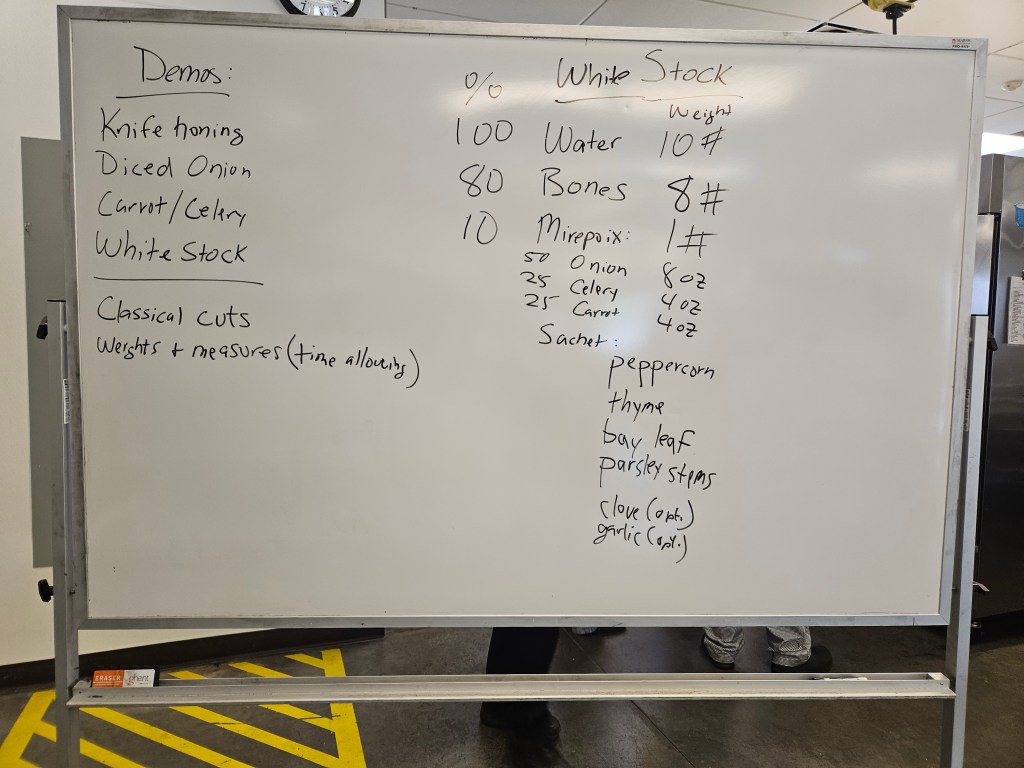 Demos:
Knife honing
Diced Onion
Carrot/Celery
White Stock
Classical cuts
Weights + measures (time allowing)
% White Stock
Weight
100 Water 10#
80 Bones 8#
10 Mirepoix: 1#
50 Onion 8oz
25 Celery 4oz
25 Carrot 4oz
Sachet:
peppercorn
thyme
bay leaf
parsley stems
clove (opt.)
garlic (opt.)
ERASER ghent